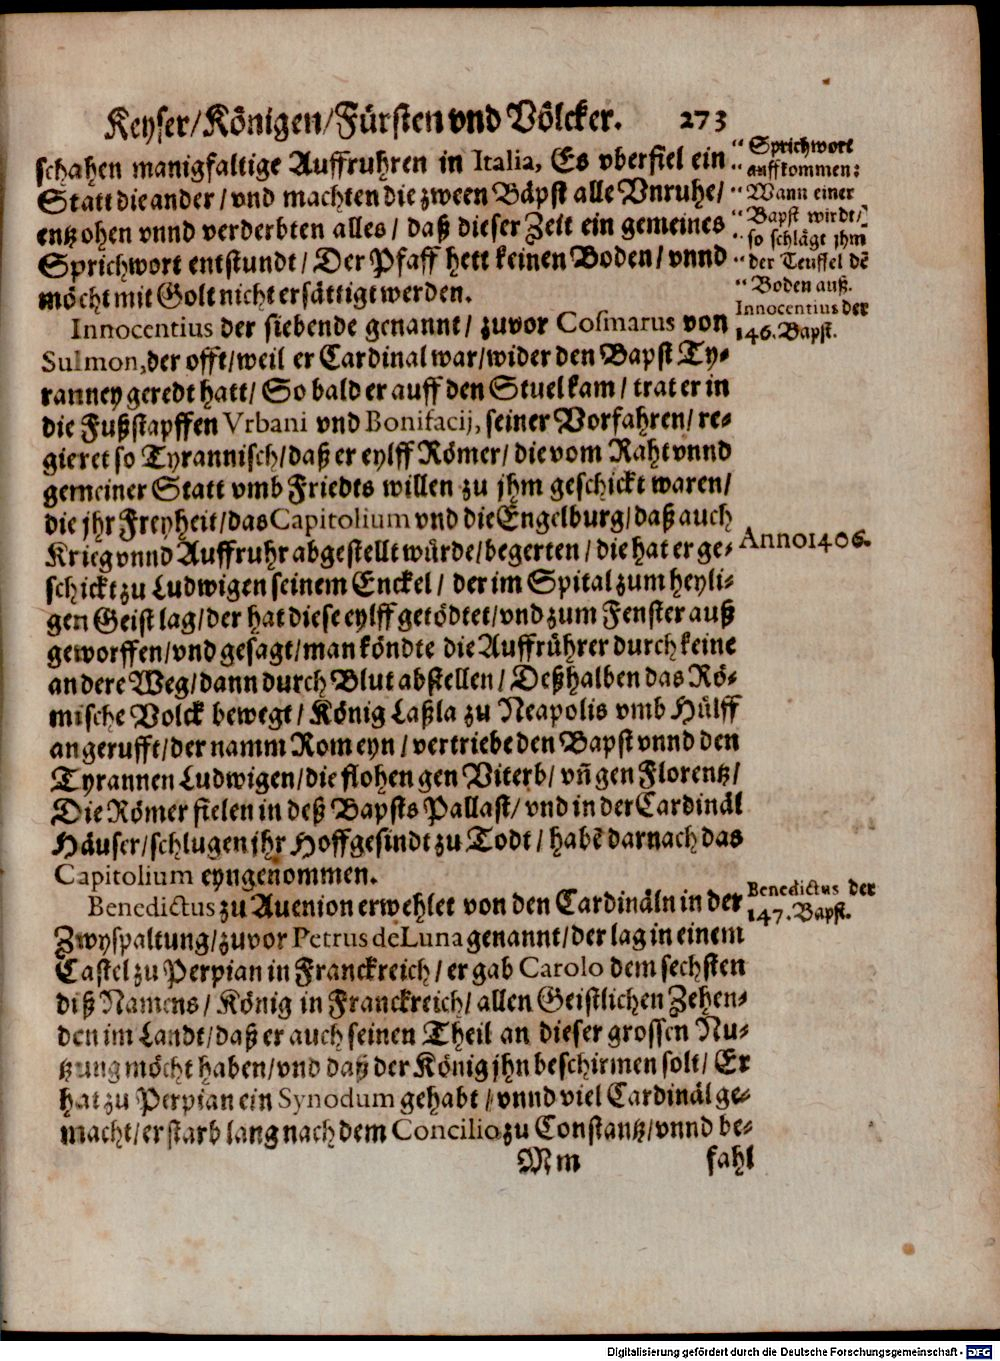 Keyser/Königen/Fürsten vnd Völcker. 273
schahen manigfaltige Auffruhren in Italia, Es vberfiel ein
Statt die ander/ vnd machten die zween Bäpst alle Vnruhe/
entzohen vnnd verderbten alles/ daß dieser Zeit ein gemeines
Sprichwort entstundt/ Der Pfaff hett keinen Boden/ vnnd
möcht mit Golt nicht ersättigt werden.
" Sprichwort
" auffkommen:
" Wann einer
" Bapst wirdt/
" so schlägt jhm
" der Teuffel dē
" Boden auß.
Innocentius der
146. Bapst.
Innocentius der siebende genannt/ zuvor Cosmarus von
Sulmon, der offt/weil er Cardinal war/wider den Bapst Ty-
ranney geredt hatt/ So bald er auff den Stuel kam/ trat er in
die Fußstapffen Vrbani vnd Bonifacij, seiner Vorfahren/ re-
gieret so Tyrannisch/daß er eylff Römer/ die vom Raht vnnd
gemeiner Statt vmb Friedts willen zu jhm geschickt waren/
die jhr Freyheit/das Capitolium vnd die Engelburg/daß auch
Krieg vnnd Auffruhr abgestellt würde/begerten/ die hat er ge-
Anno 1406.
schickt zu Ludwigen seinem Enckel/ der im Spital zum heyli-
gen Geist lag/der hat diese eylff getödtet/vnd zum Fenster auß
geworffen/vnd gesagt/man köndte die Auffrührer durch keine
andere Weg/dann durch Blut abstellen/ Deßhalben das Rö-
mische Volck bewegt/ König Laßla zu Neapolis vmb Hülff
angerufft/der namm Rom eyn/ vertriebe den Bapst vnnd den
Tyrannen Ludwigen/die flohen gen Viterb/ vñ gen Florentz/
Die Römer fielen in deß Bapsts Pallast/ vnd in der Cardinäl
Häuser/schlugen jhr Hoffgesindt zu Todt/ habē darnach das
Capitolium eyngenommen.
Benedictus der
147. Bapst.
Benedictus zu Auenion erwehlet von den Cardinäln in der
Zwyspaltung/zuvor Petrus de Luna genannt/der lag in einem
Castel zu Perpian in Franckreich/ er gab Carolo dem sechsten
diß Namens/ König in Franckreich/ allen Geistlichen Zehen-
den im Landt/daß er auch seinen Theil an dieser grossen Nu-
tzung möcht haben/vnd daß der König jhn beschirmen solt/ Er
hat zu Perpian ein Synodum gehabt/ vnnd viel Cardinäl ge-
macht/er starb lang nach dem Concilio zu Constantz/vnnd be-
Mm fahl
Digitalisierung gefördert durch die Deutsche Forschungsgemeinschaft - DFG